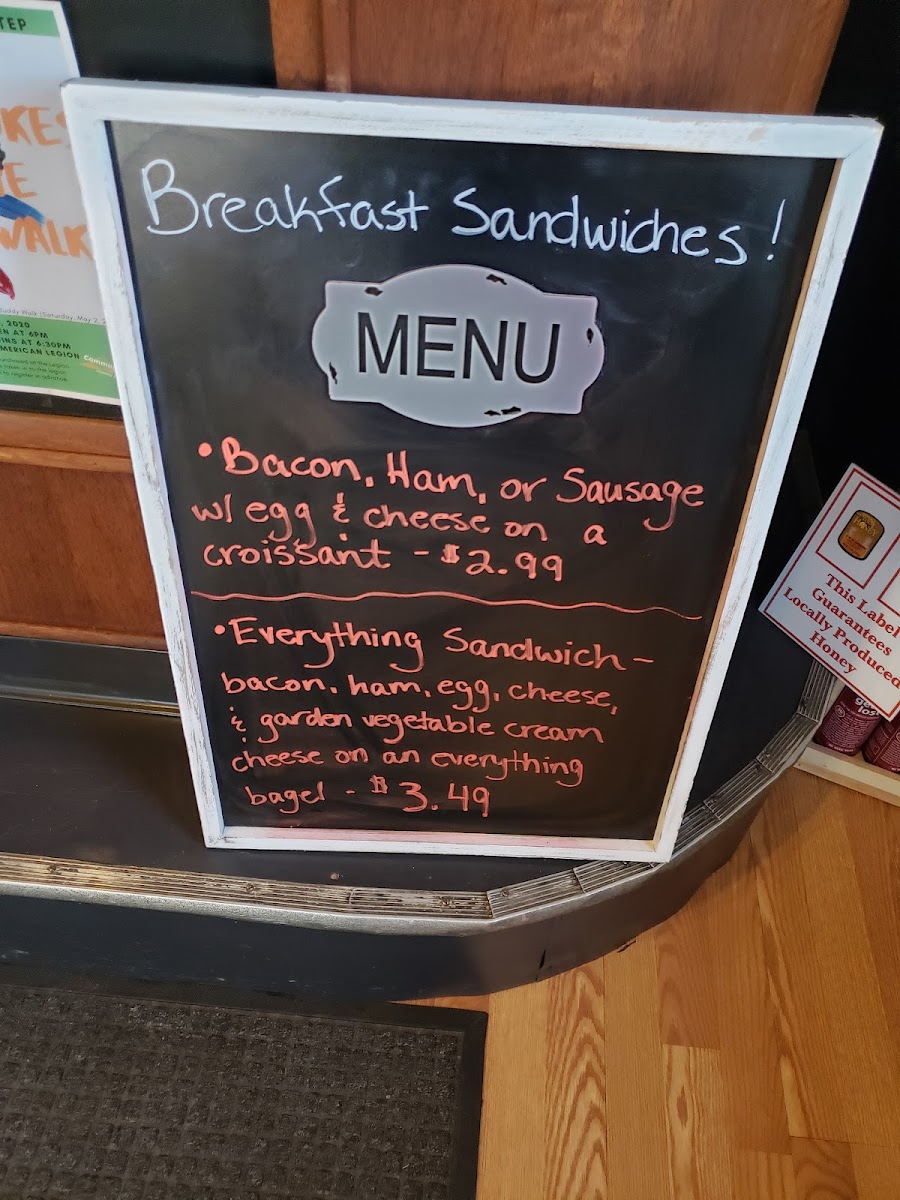 Breakfast Sandwiches!
MENU
• Bacon, Ham, or Sausage
w/ egg & cheese on a
croissant - $2.99
• Everything Sandwich-
bacon, ham, egg, cheese,
& garden vegetable cream
cheese on an everything
bagel - $3.49
WALK
Buddy Walk (Saturday, May 2,
, 2020
AT 6PM
AT 6:30PM
AMERICAN LEGION
This Label
Guarantees
Locally Produced
Honey